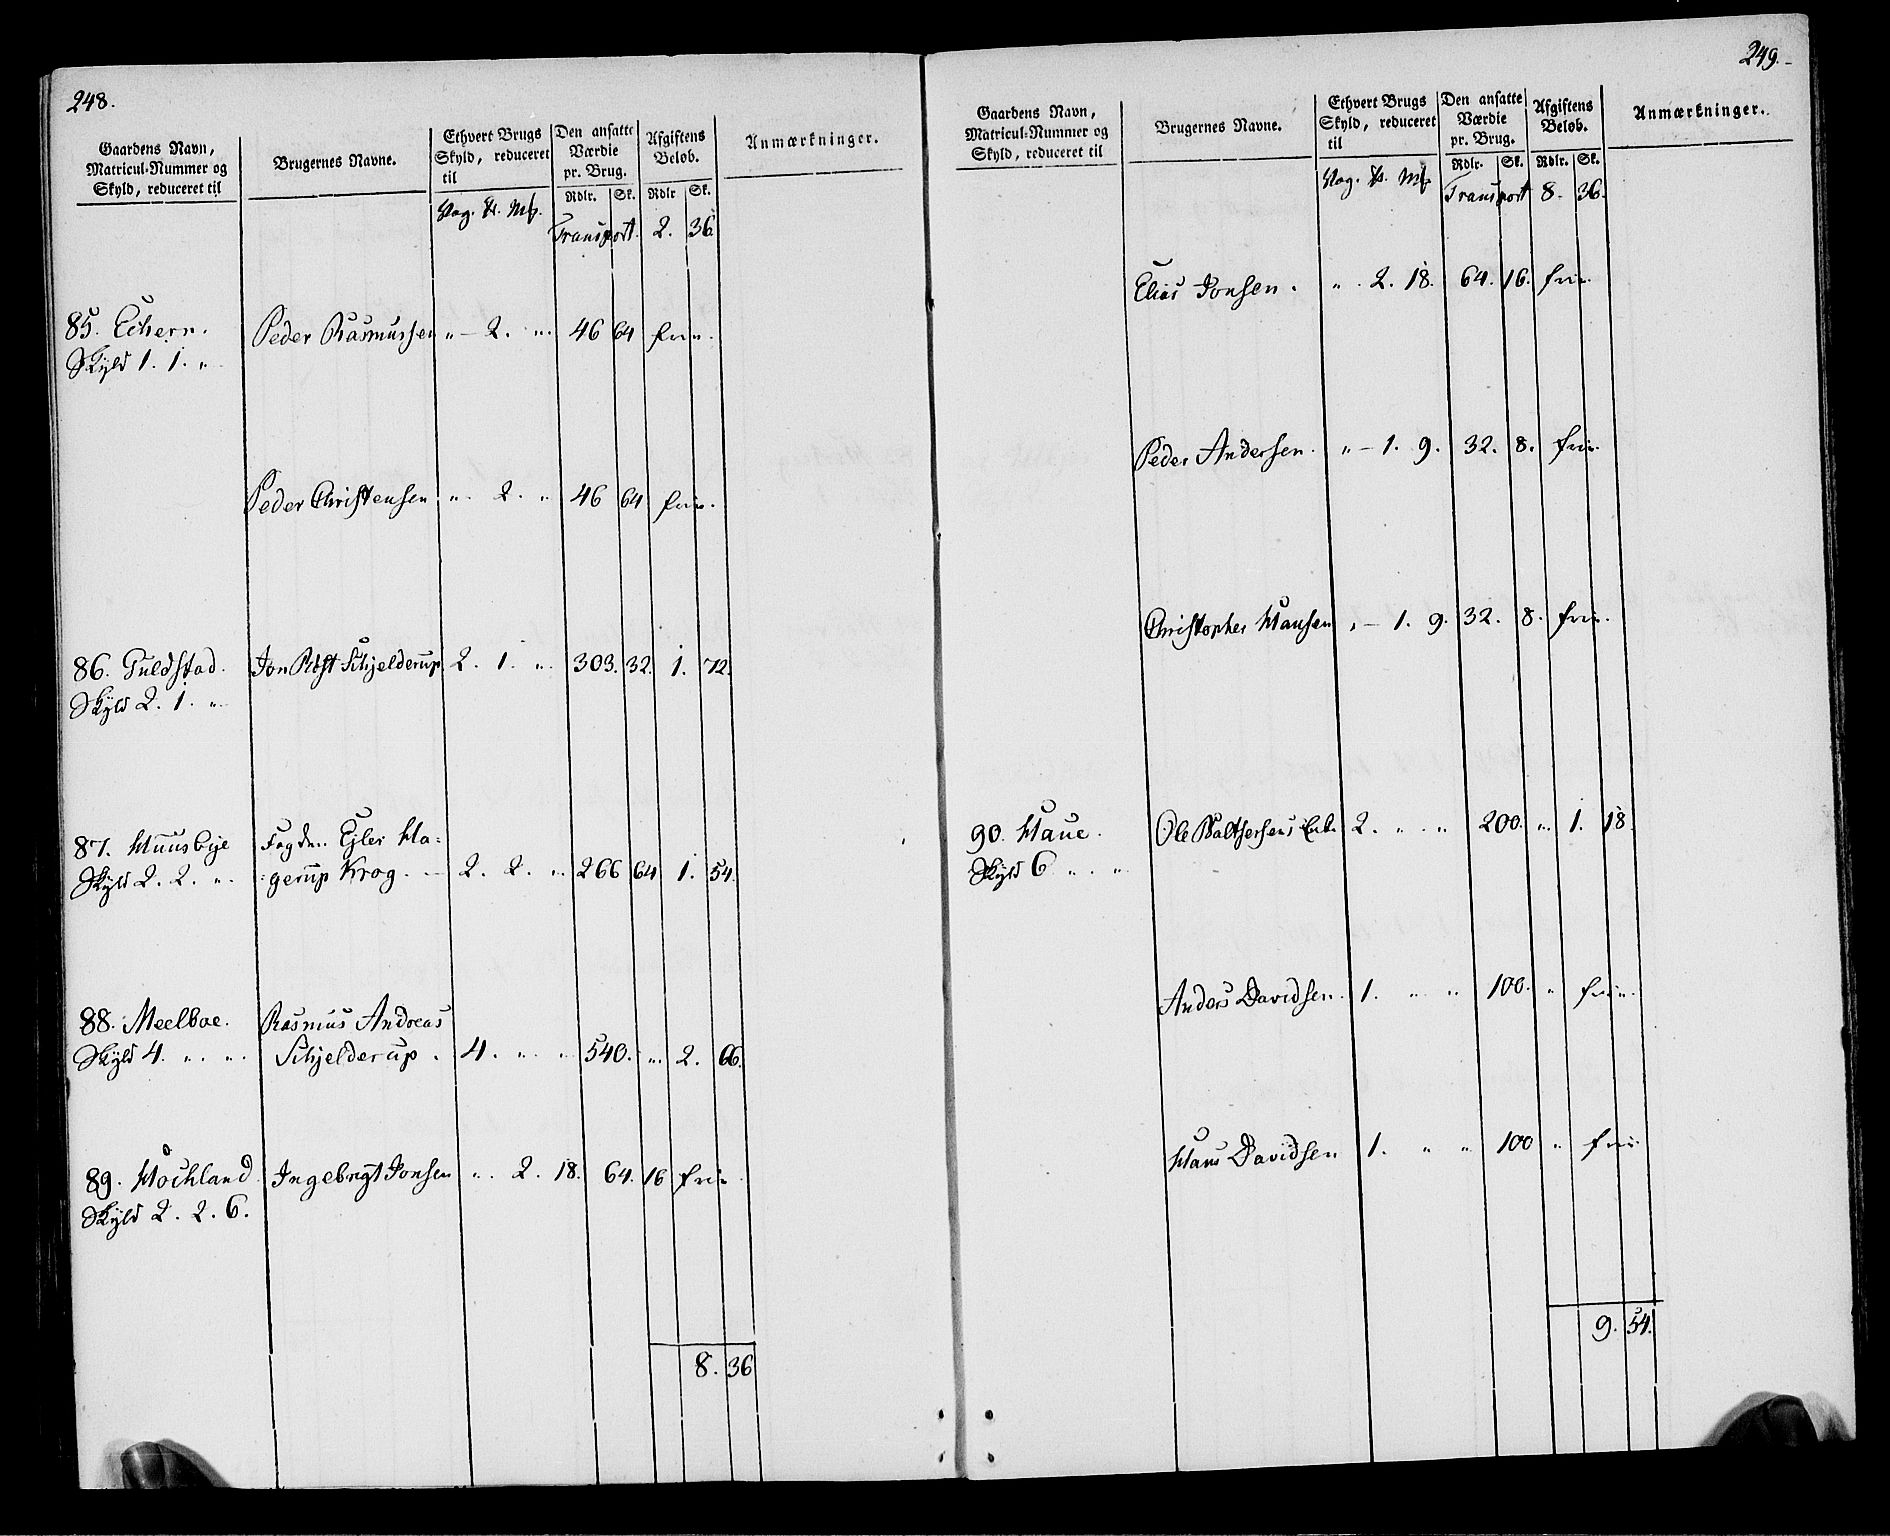 248.
Gaardens Navn, Matricul-Nummer og Skyld, reduceret til
Brugernes Navne.
Ethvert Brugs Skyld, reduceret til
Den ansatte Værdie pr. Brug.
Afgiftens Beløb.
Anmærkninger.
Rdlr. Sk. Rdlr Sk.
Vog. Pd. Mk.
Transport. 2. 36.
85. Echern. Peder Rasmussen „ – 2. „ 46 64 frie.
Skyld 1. 1. „
Peder Christensen „ 2. „ 46 64 frie.
86. Tuldstad. Jon Røst Schjelderup 2. 1. „ 303. 32. 1. 72.
Skyld 2. 1. „
87. Huusbye Fogden Ejler Ha:
Skyld 2. 2. „ :gerup Krog. 2. 2. „ 266 64 1. 54.
88. Meelboe. Rasmus Andreas
Skyld 4. „ „ Schjelderup. 4. „ „ 540. „ 2. 66.
89. Hochland Ingebrigt Jonsen „ 2. 18. 64. 16 frie
Skyld 2. 2. 6.
8. 36
249.
Gaardens Navn, Matricul-Nummer og Skyld, reduceret til
Brugernes Navne.
Ethvert Brugs Skyld, reduceret til
Den ansatte Værdie pr. Brug.
Afgiftens Beløb.
Anmærkninger.
Rdlr. Sk. Rdlr. Sk.
Vog. Pd. Mk. Transport 8. 36.
Elias Jonsen. „ 2. 18. 64. 16. frie.
Peder Andersen. „ – 1. 9. 32. 8. frie.
Christopher Hansen „ – 1. 9. 32. 8. frie.
90. Haue. Ole Balthersens Enke 2. „ „ 200. „ 1. 18.
Skyld 6 „ „
Anders Davidsen. 1. „ „ 100. „ frie.
Hans Davidsen 1. „ „ 100 „ frie
9. 54.